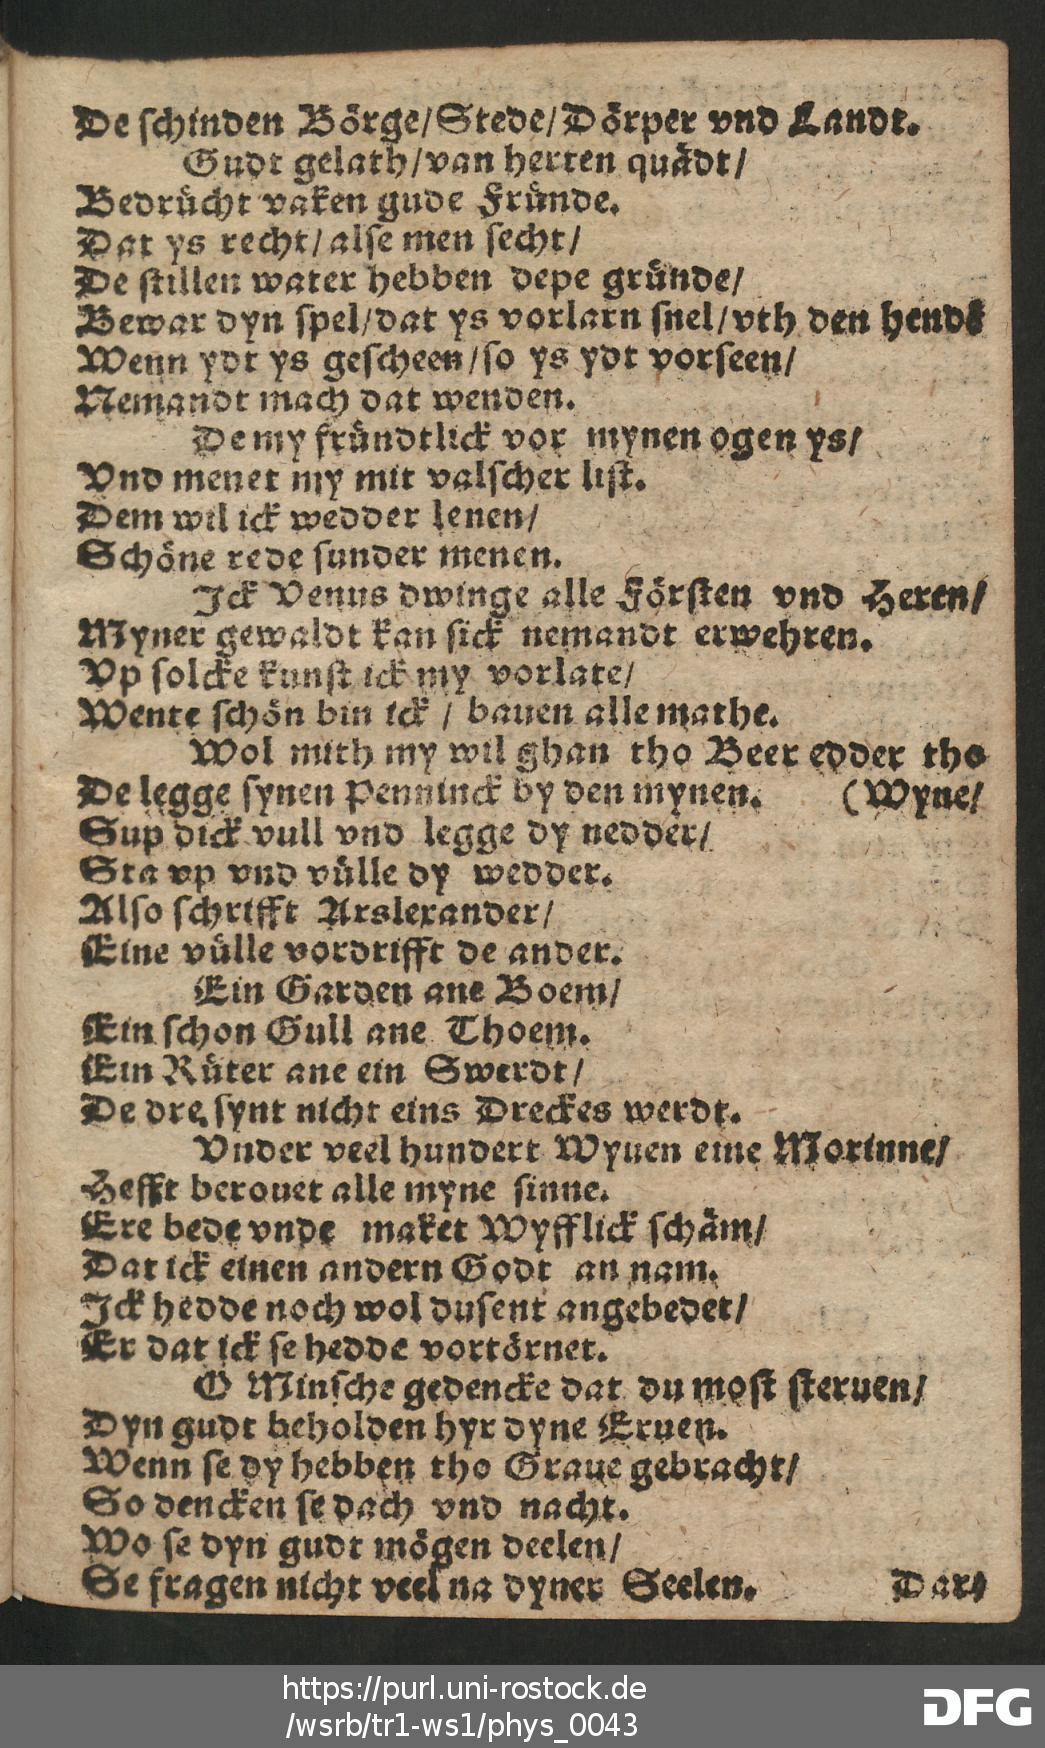 De schinden Börge/Stede/Dörper vnd Landt.
Gudt gelath/van herten quädt/
Bedrücht vaken gude Fründe.
Dat ys recht/alse men secht/
De stillen water hebben depe gründe/
Bewar dyn spel/dat ys vorlarn snel/vth den hendẽ
Wenn ydt ys gescheen/so ys ydt vorseen/
Nemandt mach dat wenden.
De my fründtlick vor mynen ogen ys/
Vnd menet my mit valscher list.
Dem wil ick wedder lenen/
Schöne rede sunder menen.
Ick Venus dwinge alle Försten vnd Heren/
Myner gewaldt kan sick nemandt erwehren.
Vp solcke kunst ick my vorlate/
Wente schön bin ick / bauen alle mathe.
Wol mith my wil ghan tho Beer edder tho
De legge synen Penninck by den mynen. (Wyne/
Sup dick vull vnd legge dy nedder/
Sta vp vnd vülle dy wedder.
Also schrifft Arslexander/
Eine vülle vordrifft de ander.
Ein Garden ane Boem/
Ein schon Gull ane Thoem.
Ein Rüter ane ein Swerdt/
De dre synt nicht eins Dreckes werdt.
Vnder veel hundert Wyuen eine Morinne/
Hefft berouet alle myne sinne.
Ere bede vnde maket Wyfflick schäm/
Dat ick einen andern Godt an nam.
Ick hedde noch wol dusent angebedet/
Er dat ick se hedde vortörnet.
O Minsche gedencke dat du most steruen/
Dyn gudt beholden hyr dyne Eruen.
Wenn se dy hebben tho Graue gebracht/
So dencken se dach vnd nacht.
Wo se dyn gudt mögen deelen/
Se fragen nicht veel na dyner Seelen. Dar,
https://purl.uni-rostock.de
/wsrb/tr1-ws1/phys_0043
DFG